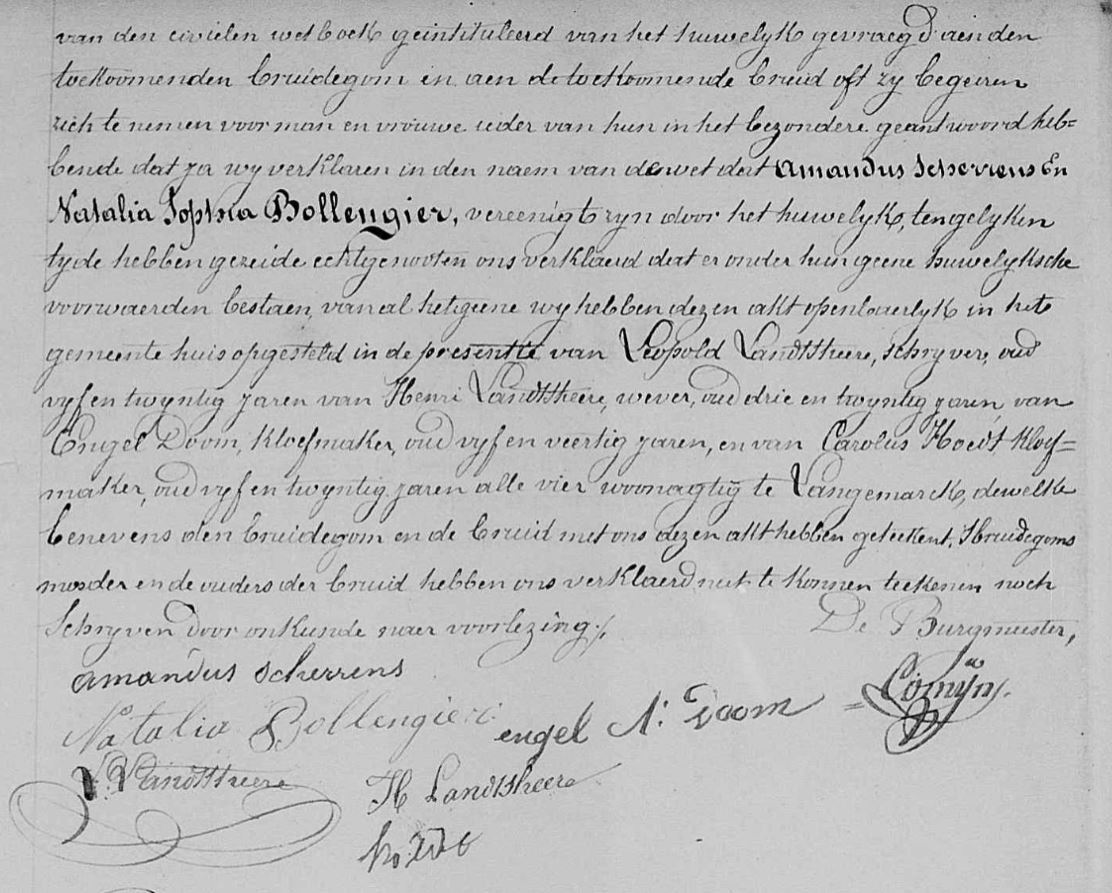 van den civielen wetboek geintituleerd van het huwelyk gevraegd aen den
toekoomenden bruidegom en aen de toekoomende bruid oft zy begeiren
zich te nemen voor man en vrouwe ieder van hun in het bezondere geantwoord heb=
bende dat ja wy verklaren in den naem van de wet dat Amandus Scherrens En
Natalia Sophia Bollengier, vereenigt zyn door het huwelyk, tengelyken
tyde hebben gezeide echtgenooten ons verklaerd dat er onder hun geene huwelyksche
voorwaerden bestaen, van al hetgeene wy hebben dezen akt openbaerlyk in het
gemeente huis opgesteld in de presentie van Leopold Landtsheere, schryver, oud
vyf en twyntig jaren van Henri Landtsheere, wever, oud drie en twyntig jaren, van
Engel Doom, kloefmaker, oud vyf en veertig jaren, en van Carolus Hoedt kloef=
maker, oud vyf en twyntig jaren alle vier woonagtig te Langemarck, dewelke
benevens den bruidegom en de bruid met ons dezen akt hebben geteekent, S'bruidegoms
moeder en de ouders der bruid hebben ons verklaerd niet te konnen teekenen noch
Schryven door onkunde naer voorlezing./.
De Burgmeester,
amandus scherrens
Comÿn
Natalia Bollengier
engel A: Doom
L. Landtsheere
H Landtsheere